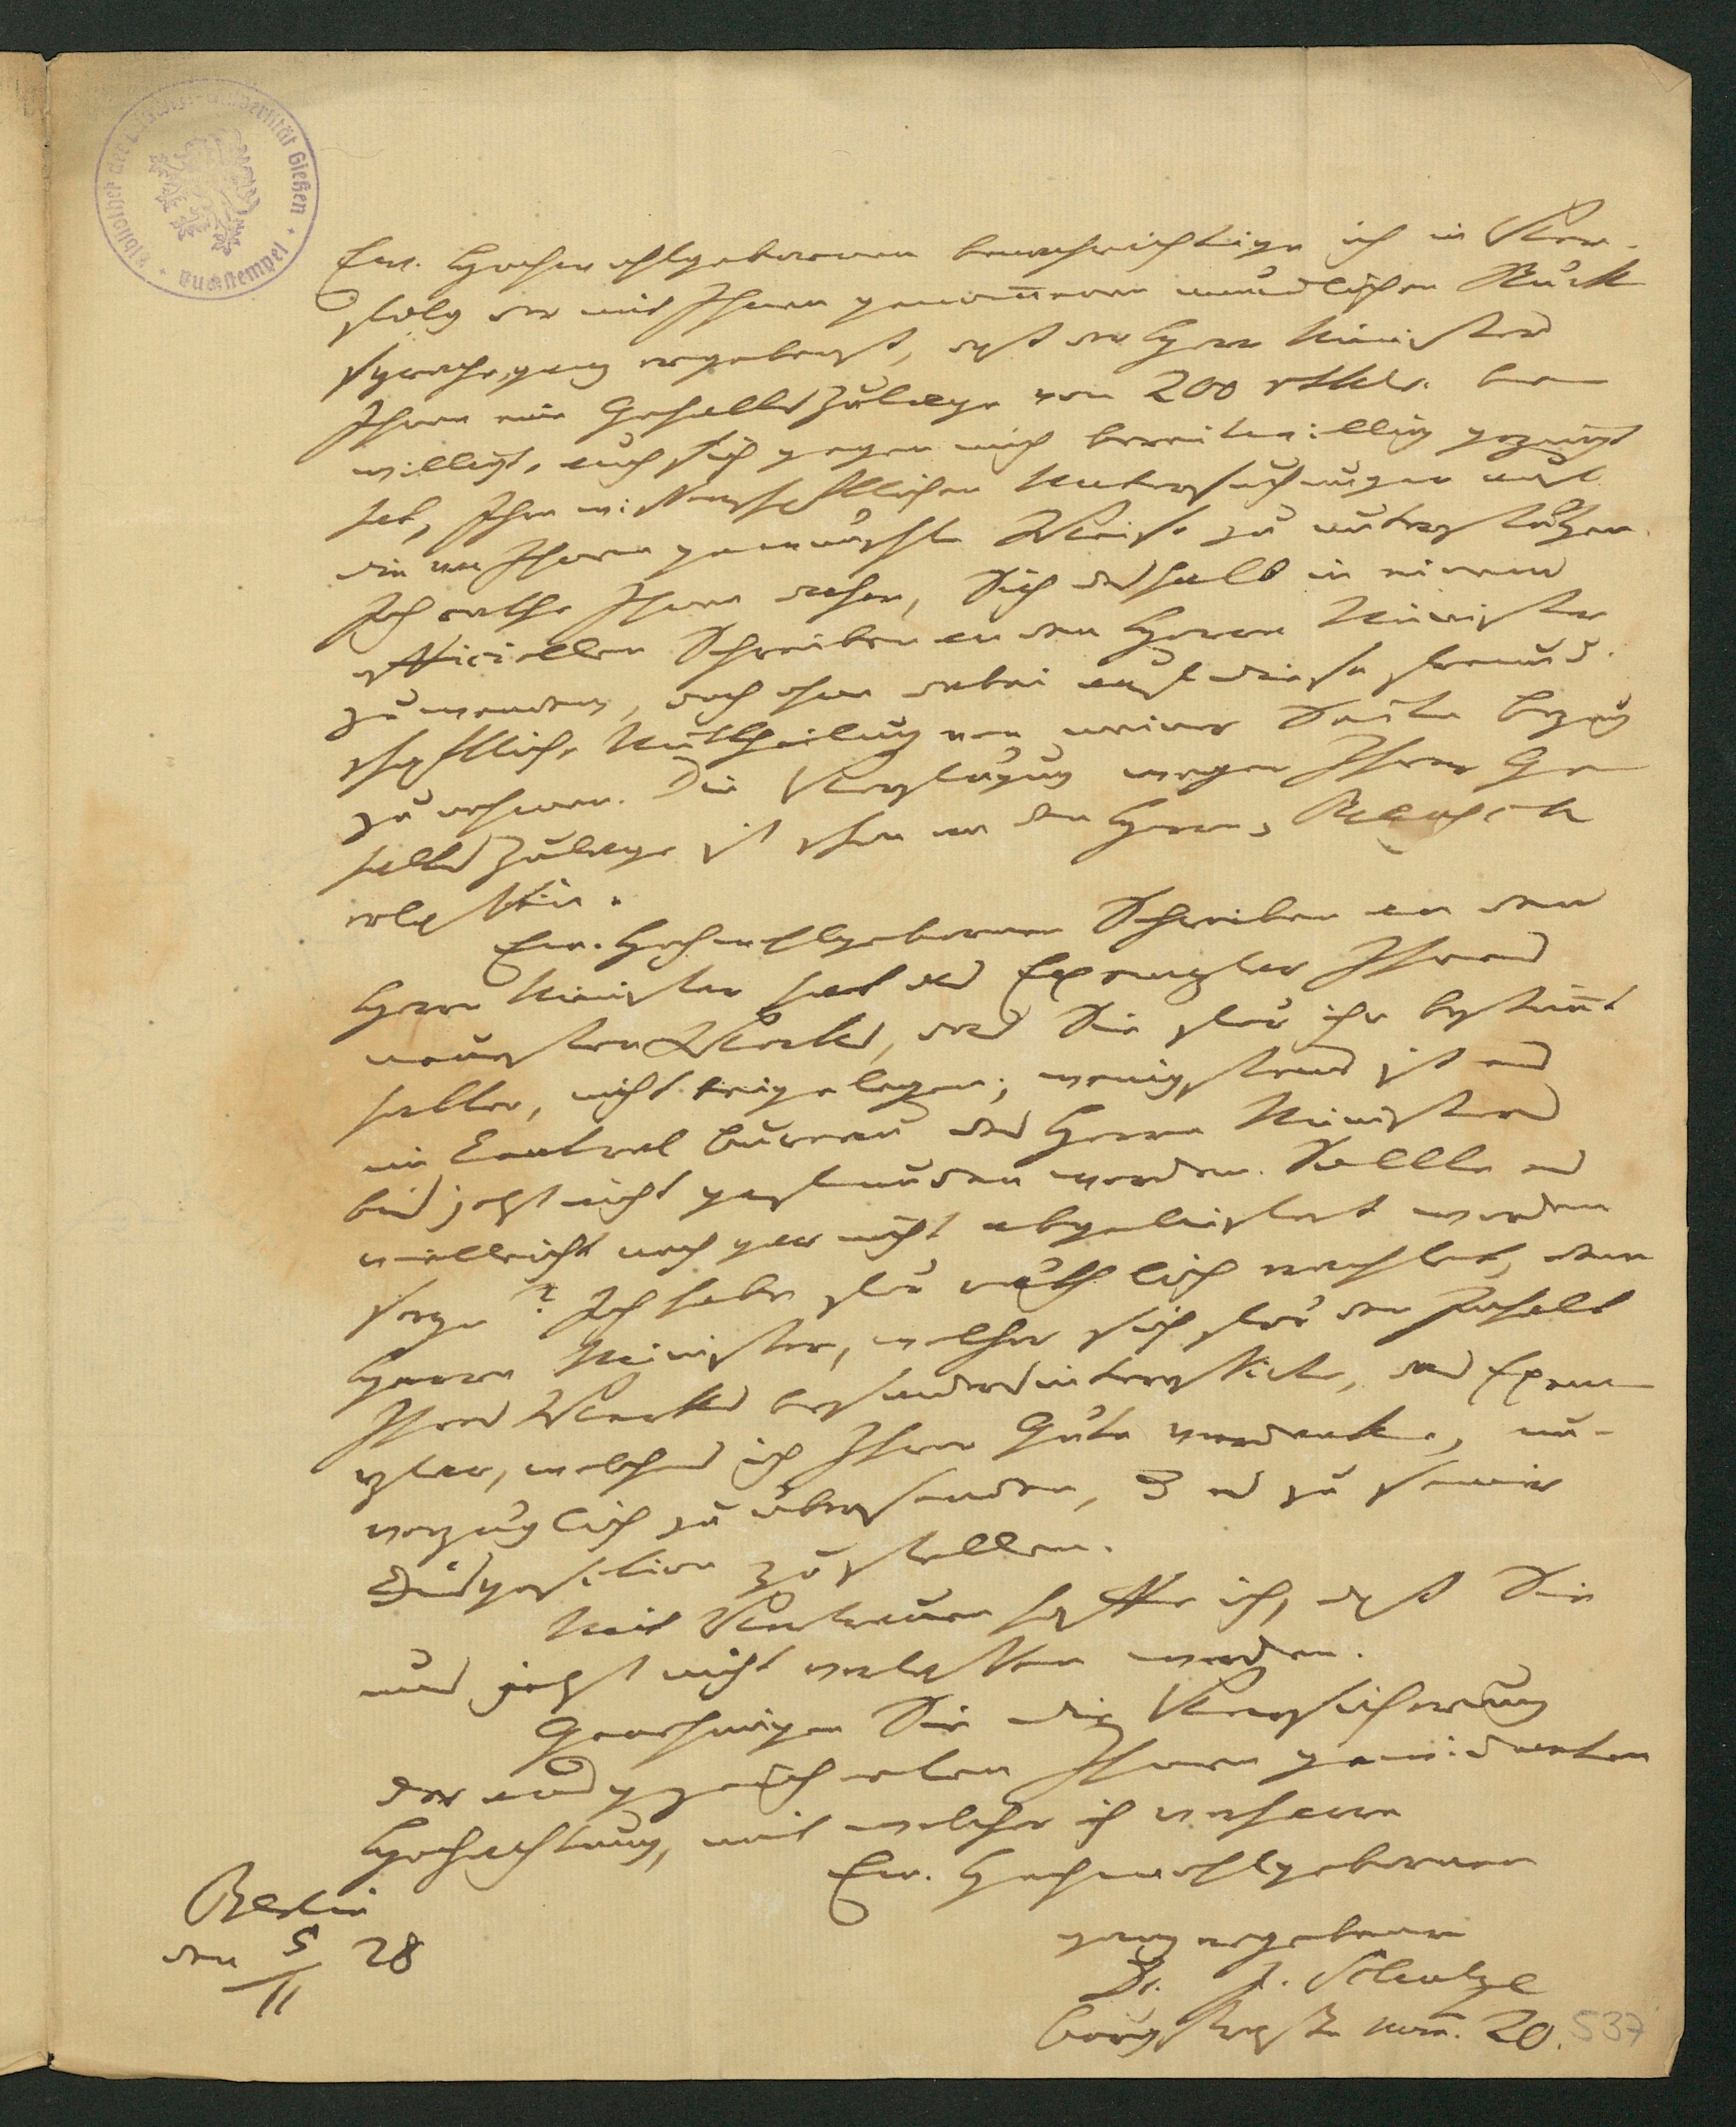 Bibliothek der Ludwigs-Universität Gießen
Buchstempel
Ew. Hochwohlgeborenen benachrichtige ich in Ver-
folg der mit Ihnen genom̅enen mündlichen Rück
sprache, ganz ergebenst, daß der Herr Minister
Ihnen eine Gehaltszulage von 200 rthlr. be
willigt, auch sich gegen mich bereitwillig gezeigt
hat, Ihre wissenschaftlichen Untersuchungen auf
die von Ihnen gewünschte Weise zu unterstützen.
Ich rathe Ihnen daher, Sich deshalb in einem
officiellen Schreiben an den Herrn Minister
zu wenden, doch ohne dabei auf diese freund-
schaftliche Mittheilung von meiner Seite bezug
zu nehmen. Die Verfügung wegen Ihrer Ge
haltszulage ist schon an den Herrn
erlassen.
Ew. Hochwohlgeborenen Schreiben an den
Herrn Minister hat das Exemplar Ihres
neuesten Werkes, das Sie für ihn bestim̅t
hatten, nicht beigelegen; wenigstens ist es
im Central bureau des Herrn Ministers
bis jetzt nicht gefunden worden. Sollte es
vielleicht noch gar nicht abgeliefert worden
seyn? Ich habe für räthlich erachtet, dem
Herrn Minister, welcher sich für den Inhalt
Ihres Werkes besonders interessirte, das Exem
plar, welches ich Ihrer Güte verdanke, un-
verzüglich zu übersenden, & es zu seiner
Disposition zu stellen.
Mit Vertrauen hoffe ich, daß Sie
uns jetzt nicht verlassen werden.
Genehmigen Sie die Versicherung
der ausgezeichneten Ihnen gewidmeten
Hochachtung, mit welcher ich verharre
Ew. Hochwohlgeborenen
ganz ergebener
Dr. J. Schulze
num̅. 20.
Berlin
den 5/11 28
537